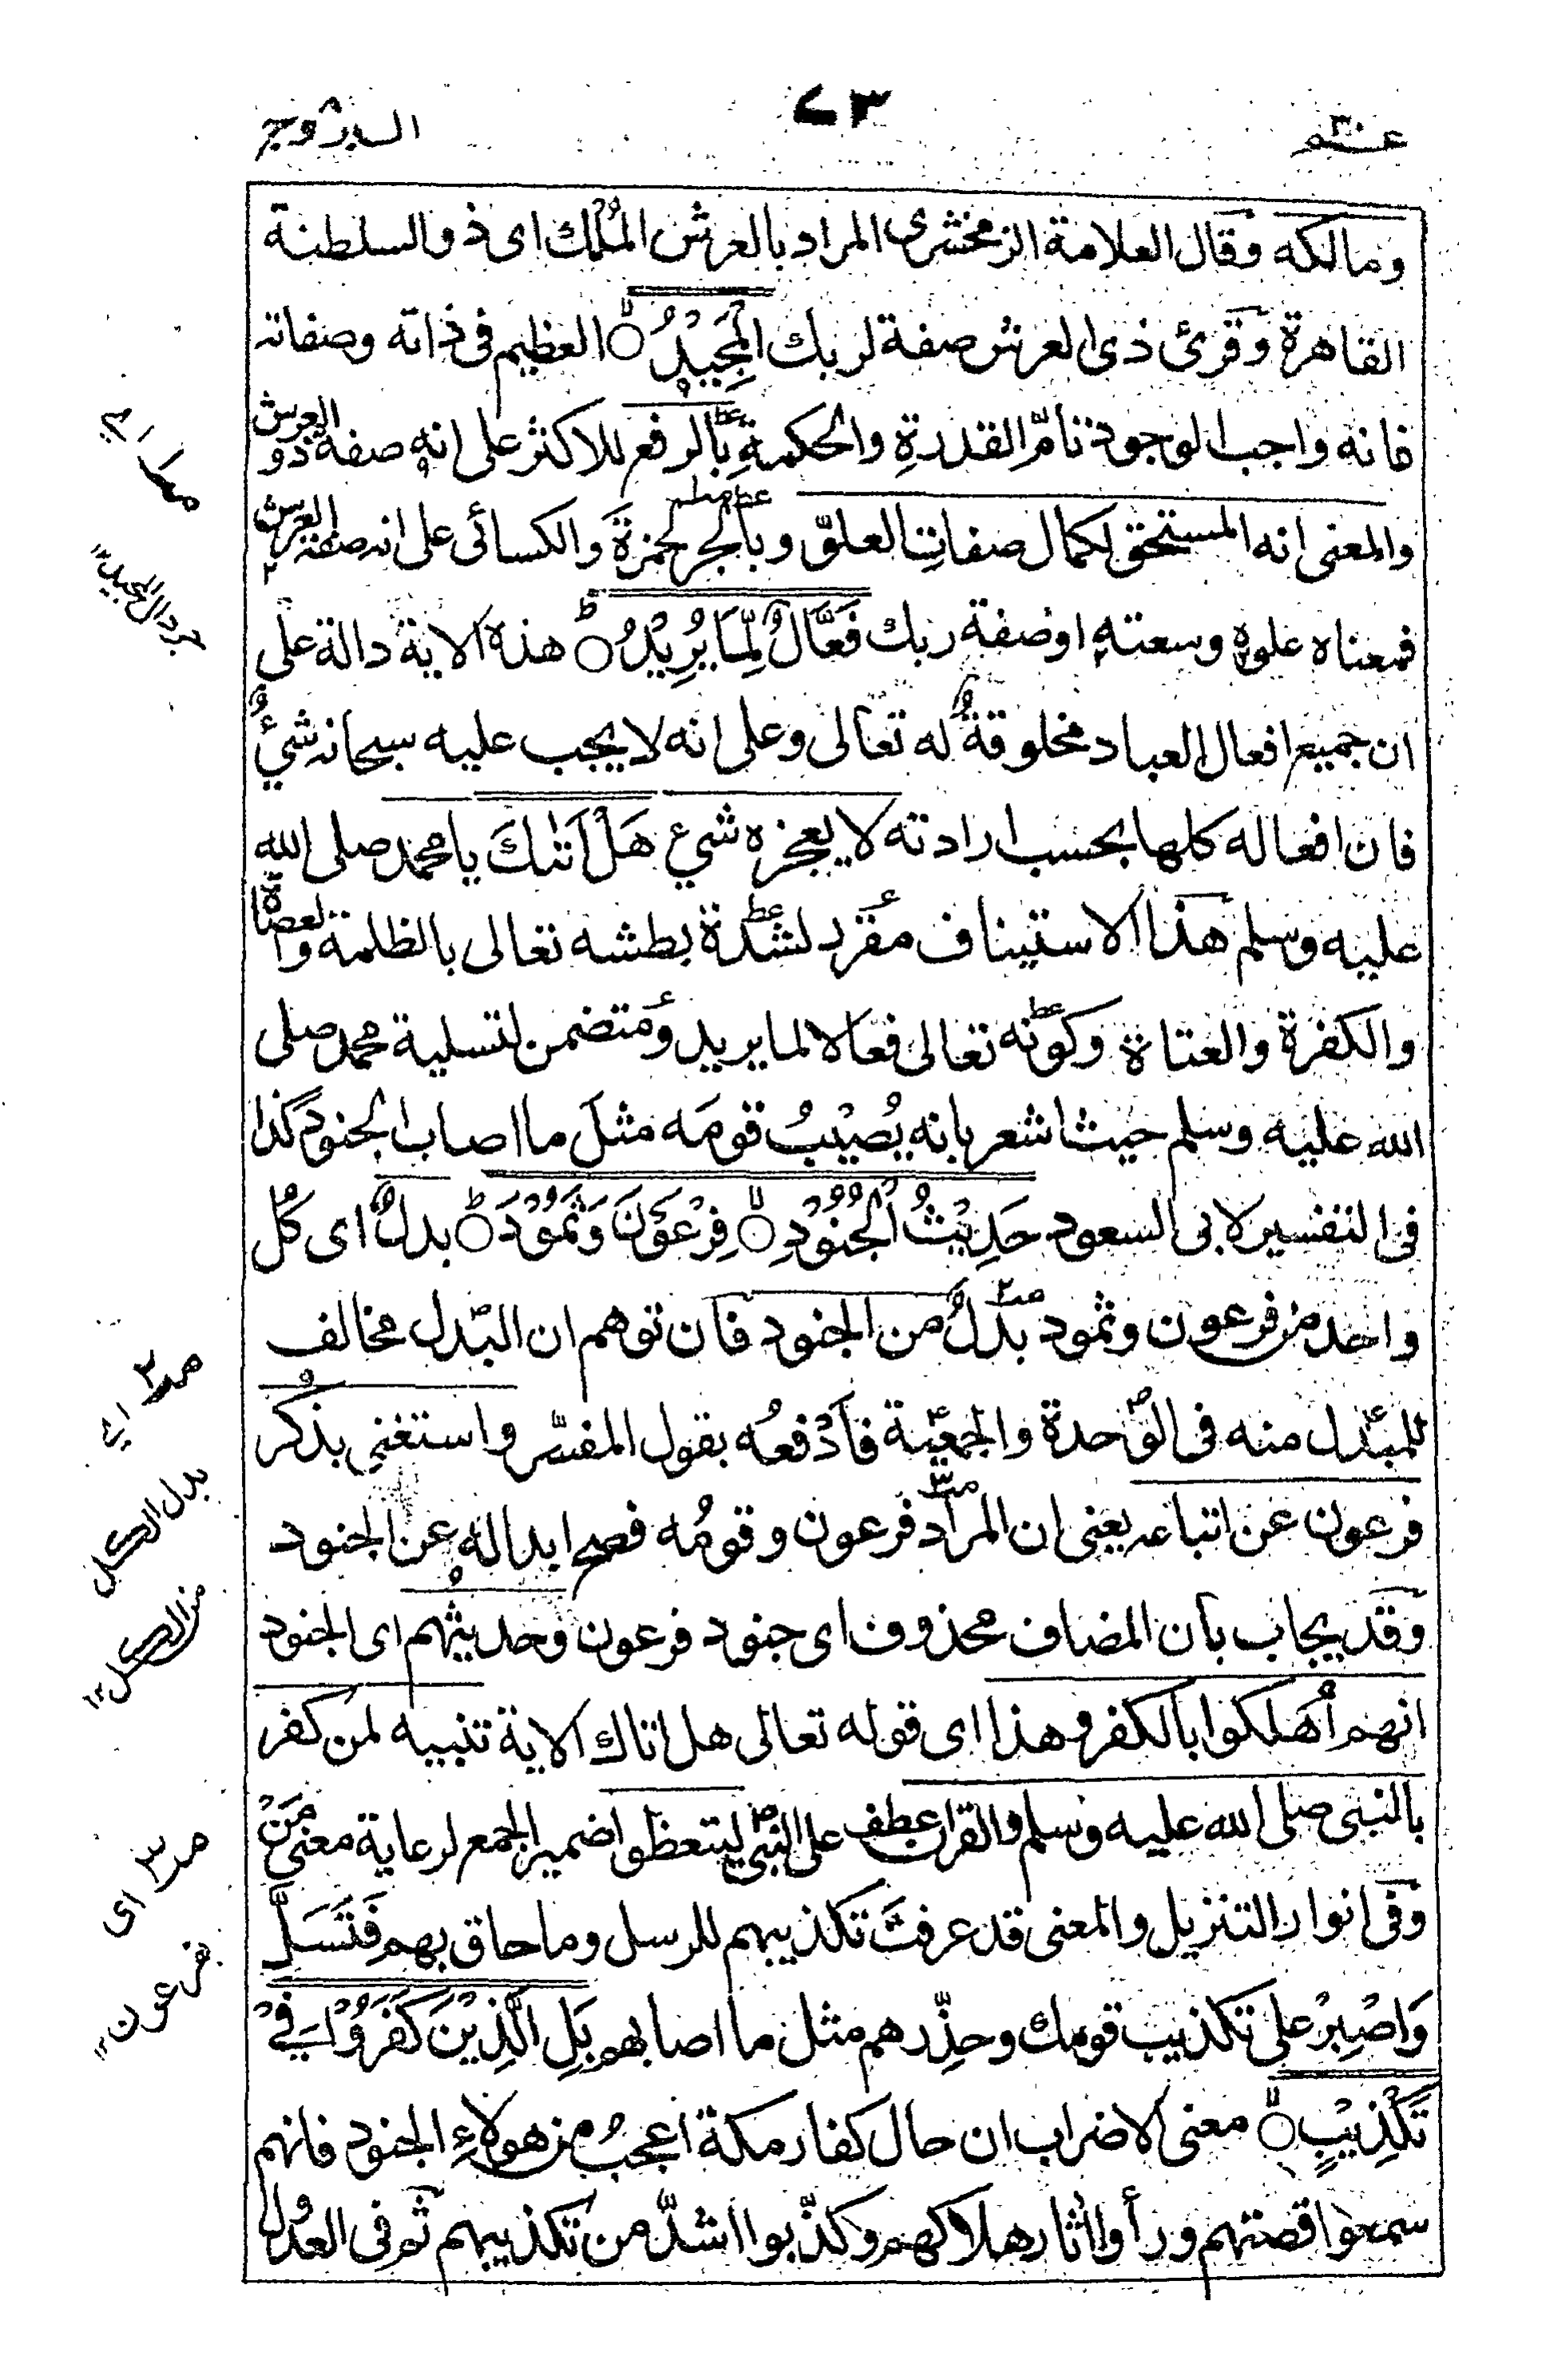 عم ٣٠
٧٣
البروج
ومالكه وقال العلامة الزمخشرى المراد بالعرش المُلك اى ذو السلطنة
القاهرة وقرئ ذى العرش صفة لربك الْمَجِيْدُ ۙ العظيم فى ذاته وصفاته
فانه واجب الوجود تامّ القدرةِ والحكمةِ بالرفع للاكثر على انه صفة ذو العرش
والمعنى انه المستحق لكمال صفاتِ العلوّ وبالجر لحمزةَ والكسائى على انه صفة العرش
فمعناه علوه وسعته او صفة ربك فَعَّالٌ لِّمَا يُرِيْدُ ؕ هذه الاية دالة على
ان جميع افعال العباد مخلوقةٌ له تعالى وعلى انه لا يجب عليه سبحانه شيءٌ
فان افعاله كلها بحسب ارادته لا يعجزه شيء هَلْ اَتٰىكَ يا محمد صلى الله
عليه وسلم هذا الاستيناف مقرر لشدة بطشه تعالى بالظلمة والعصاة
والكفرة والعتاة وكونه تعالى فعالا لما يريد ومتضمن لتسلية محمد صلى
الله عليه وسلم حيث اشعر بانه يُصِيْبُ قومَه مثلَ ما اصاب الجنود كذا
فى التفسير لابى السعود حَدِيْثُ الْجُنُوْدِ ۙ فِرْعَوْنَ وَثَمُوْدَ ؕ بدلٌ اى كُل
واحد من فرعون وثمود بدلٌ من الجنود فان توهم ان البدل مخالف
للمبدل منه فى الوحدة والجمعية فادْفعُه بقول المفسّر واستغنِي بذُكر
فرعون عن اتباعه يعنى ان المراد فرعون وقومُه فصح ابداله عن الجنود
وقد يجاب بأن المضاف محذوف اى جنود فرعون وحديثُهم اى الجنود
انهم أُهلكوا بالكفر وهذا اى قوله تعالى هل اتاك الاية تنبيه لمن كفر
بالنبى صلى الله عليه وسلم والقران عطف على النبى ليتعظوا ضمير الجمع لرعاية معنى مَنْ
وفى انوار التنزيل والمعنى قد عرفتَ تكذيبهم للرسل وما حاق بهم فَتَسَلَّ
وَاصْبِرْ على تكذيب قومك وحذِّرهم مثل ما اصابهم بَلِ الَّذِيْنَ كَفَرُوْا فِيْ
تَكْذِيْبٍ ۙ معنى الاضراب ان حال كفار مكة اعجبُ من هولاءِ الجنود فانهم
سمعوا قصتهم ورأوا اثار هلاكهم وكذّبوا اشدّ من تكذيبهم ثم فى العدول
جر دال المجيد ١٢
صـ٢ اى
بدل الكل
من الكل ١٢
صـ٣ اى
بفرعون ١٢